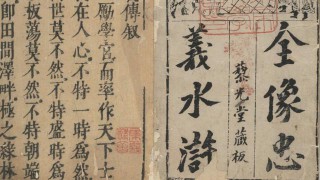 全像忠
藜光堂藏板
義水滸
傳叙
勵學宮而率作天下士
在人心不特一時為然
世莫不然不特盛時為
板蕩莫不然不特朝端
即田間澤畔極之綠林